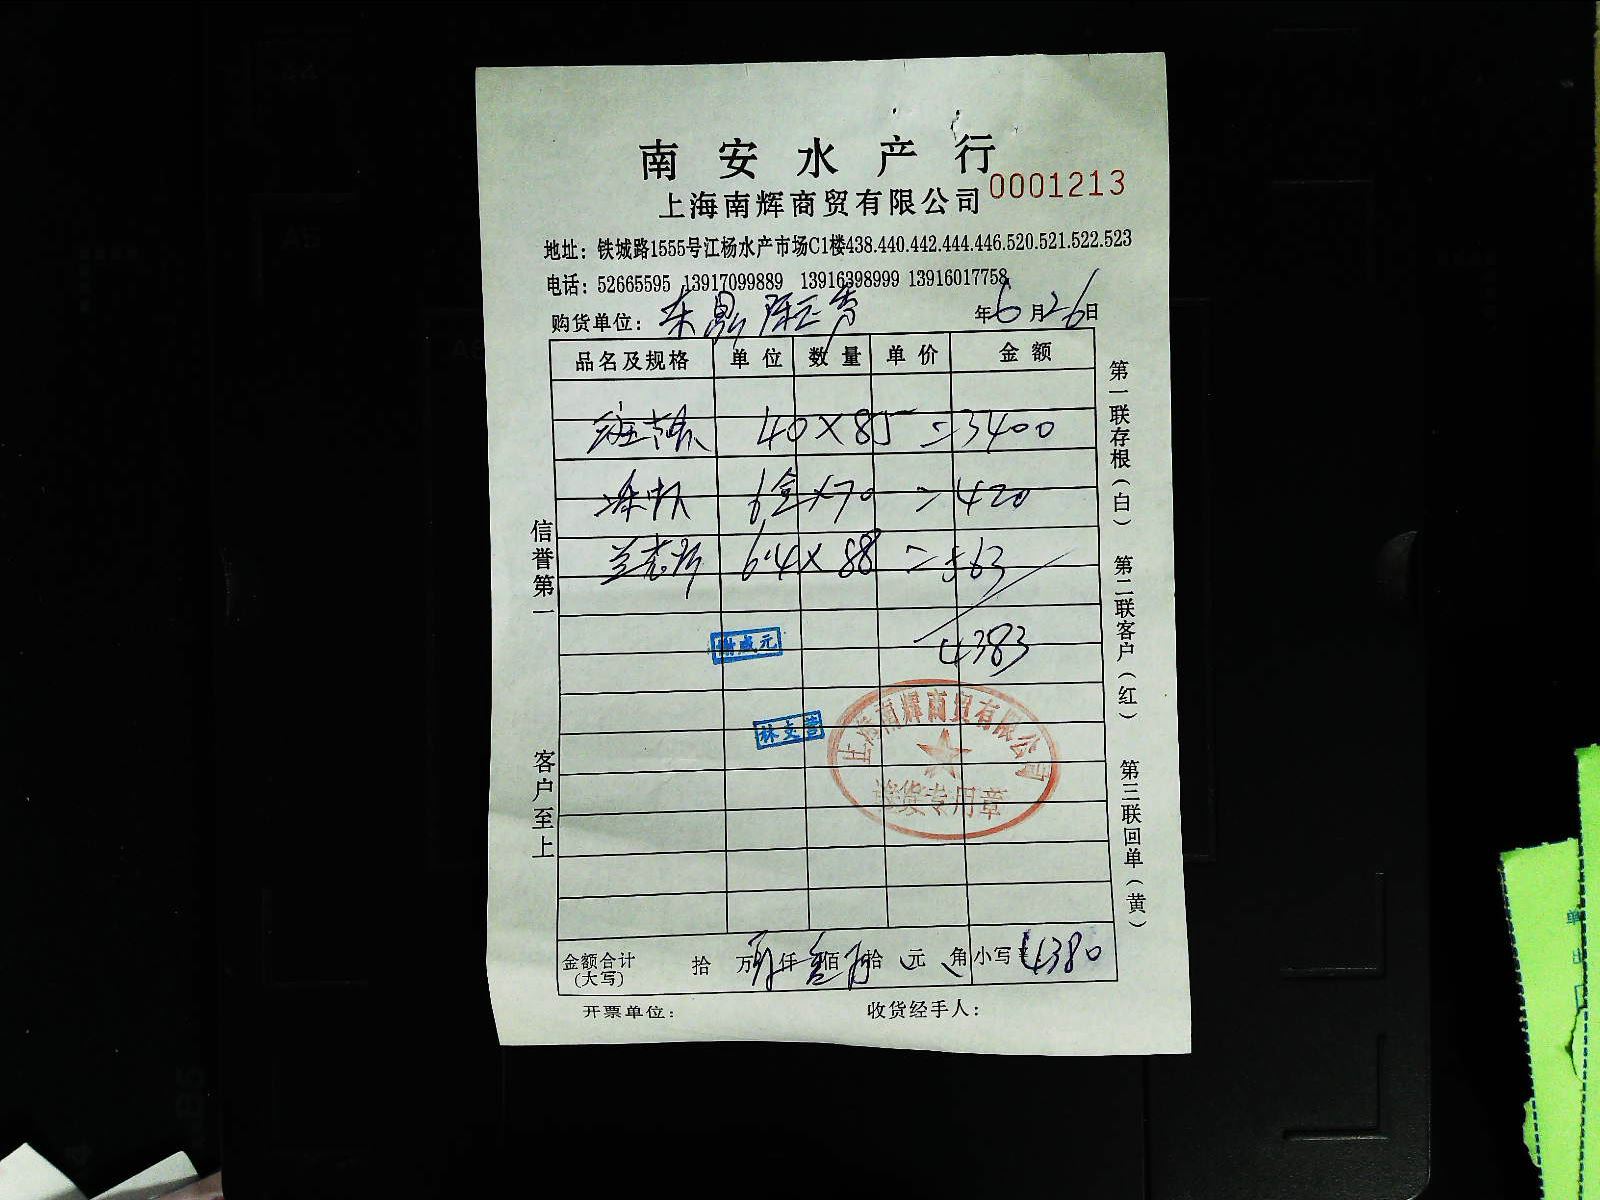 南安水产行
上海南辉商贸有限公司 0001213
地址：铁城路1555号江杨水产市场C1楼438.440.442.444.446.520.521.522.523
电话：52665595 13917099889 13916398999 13916017758
购货单位： 年6月26日
品名及规格 单位 数量 单价 金额
40×85=3400
6盒×70=420
6.4×88=563
4383
谢成元
林支营
上海南辉商贸有限公司
货专用章
金额合计(大写) 拾 万 仟 佰 拾 元 角 小写¥4380
开票单位： 收货经手人：
信誉第一
客户至上
第一联存根(白)
第二联客户(红)
第三联回单(黄)